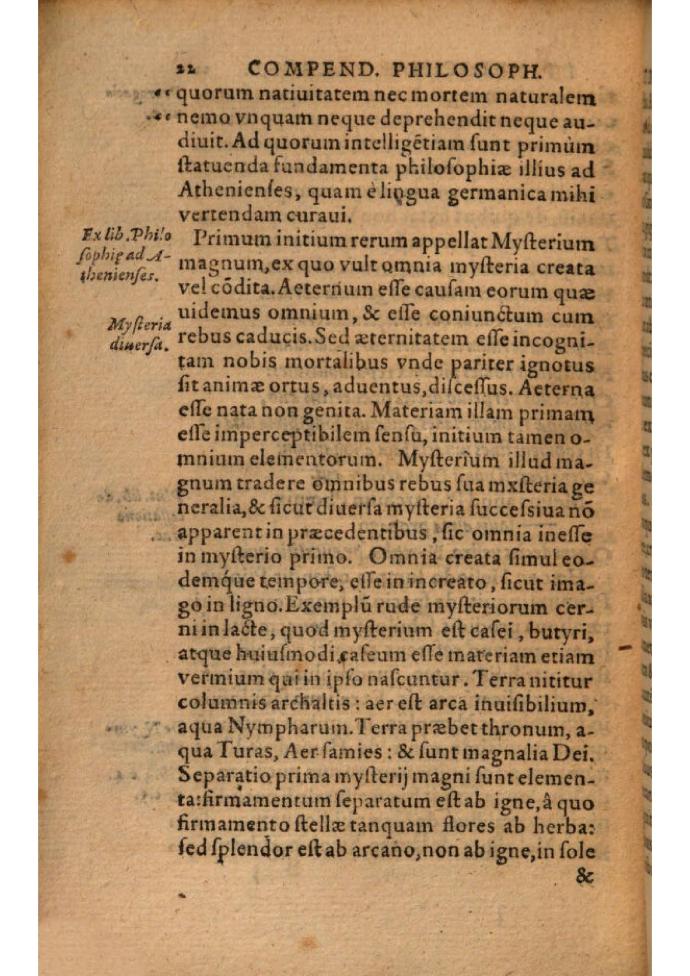 22 COMPEND. PHILOSOPH.
“ quorum natiuitatem nec mortem naturalem
“ nemo vnquam neque deprehendit neque au-
diuit. Ad quorum intelligẽtiam ſunt primùm
ſtatuenda fundamenta philoſophiæ illius ad
Athenienſes, quam è lingua germanica mihi
vertendam curaui.
Ex lib. Philo
ſophię ad A-
thenienſes.
Primum initium rerum appellat Myſterium
magnum, ex quo vult omnia myſteria creata
vel cõdita. Aeternum eſſe cauſam eorum quæ
Myſteria
diuerſa.
uidemus omnium, & eſſe coniunctum cum
rebus caducis. Sed æternitatem eſſe incogni-
tam nobis mortalibus vnde pariter ignotus
ſit animæ ortus, aduentus, diſceſſus. Aeterna
eſſe nata non genita. Materiam illam primam
eſſe imperceptibilem ſenſu, initium tamen o-
mnium elementorum. Myſterium illud ma-
gnum tradere omnibus rebus ſua mxſteria ge
neralia, & ſicut diuerſa myſteria ſucceſſiua nõ
apparent in præcedentibus, ſic omnia ineſſe
in myſterio primo. Omnia creata ſimul eo-
demq́ue tempore, eſſe in increato, ſicut ima-
go in ligno. Exemplũ rude myſteriorum cer-
ni in lacte, quod myſterium eſt caſei, butyri,
atque huiuſmodi, caſeum eſſe materiam etiam
vermium qui in ipſo naſcuntur. Terra nititur
columnis archaltis: aer eſt arca inuiſibilium,
aqua Nympharum. Terra præbet thronum, a-
qua Turas, Aer ſamies: & ſunt magnalia Dei.
Separatio prima myſterij magni ſunt elemen-
ta: firmamentum ſeparatum eſt ab igne, â quo
firmamento ſtellæ tanquam flores ab herba:
ſed ſplendor eſt ab arcano, non ab igne, in ſole
&